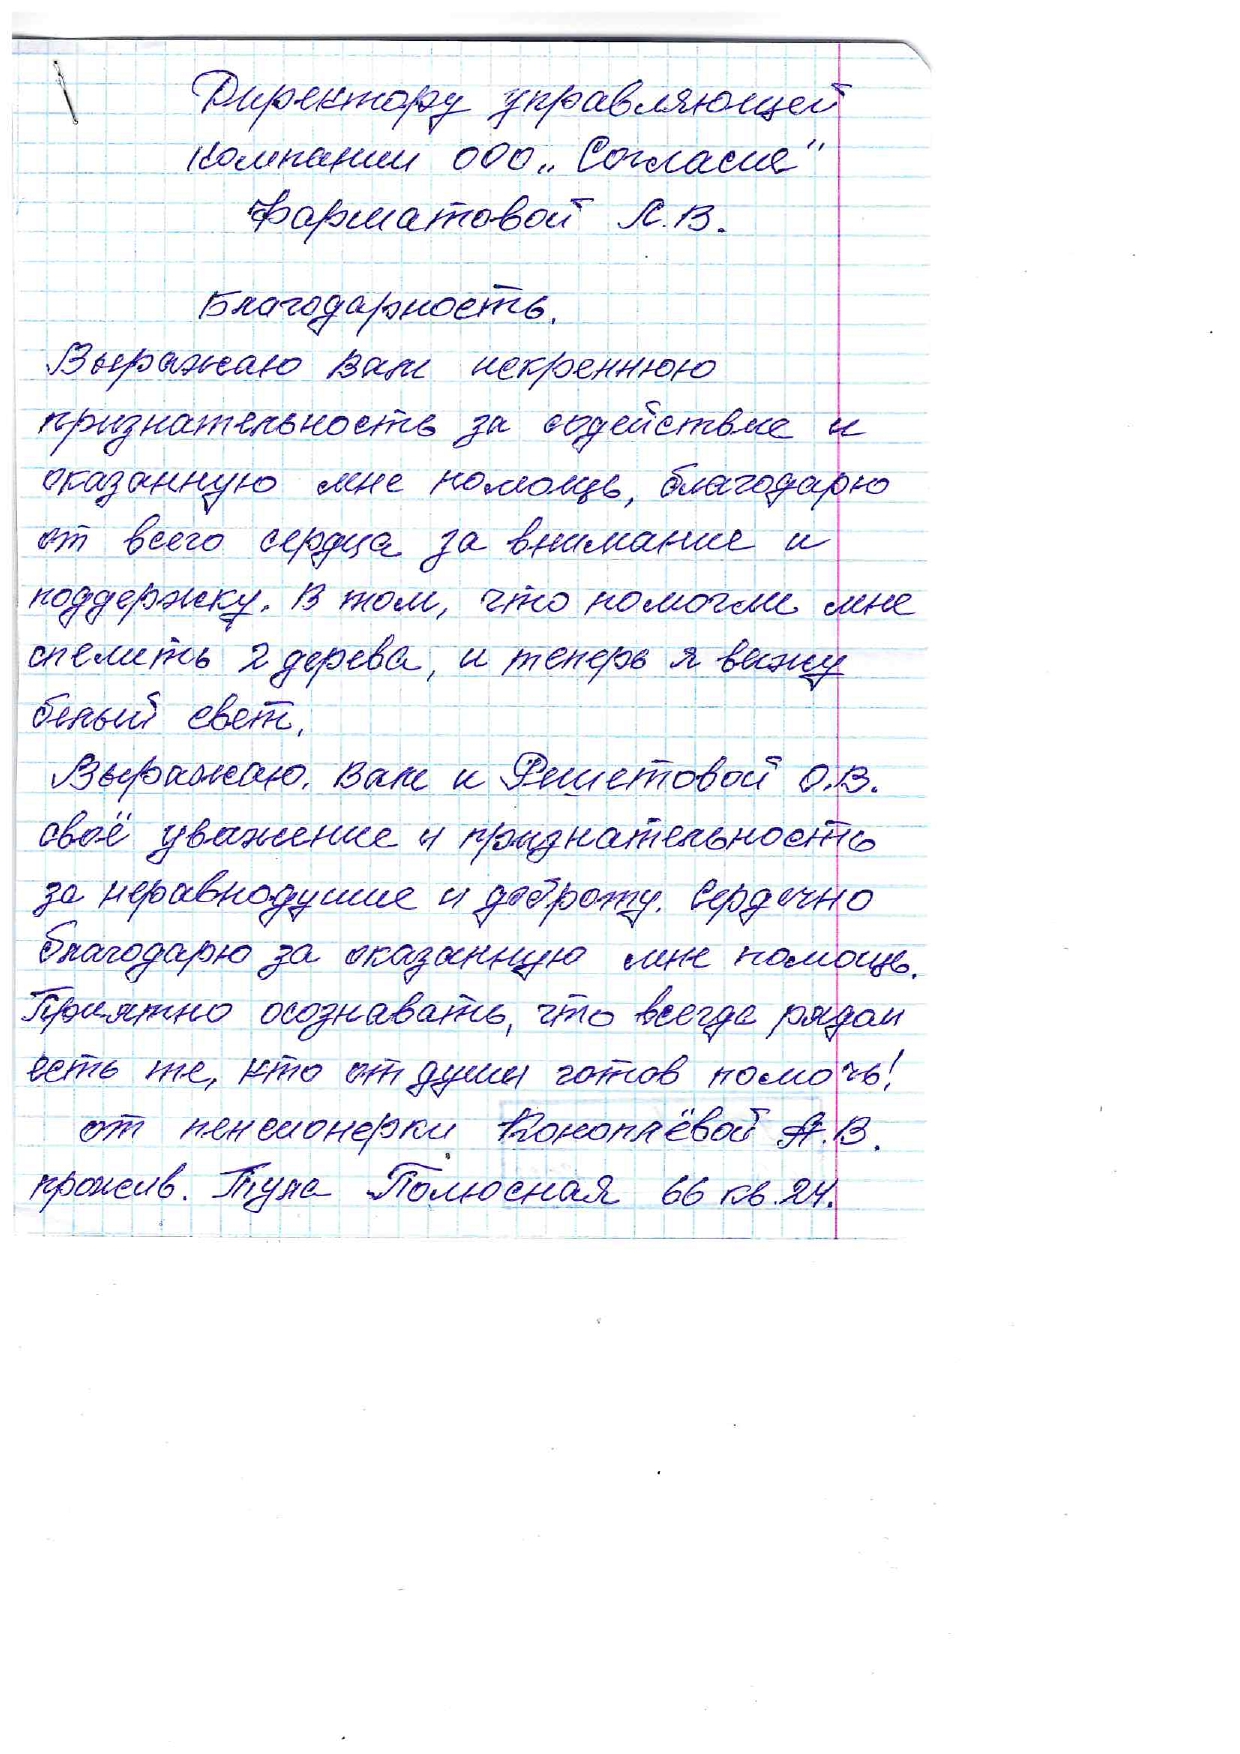 Директору управляющей
компании ООО „Согласие"
Фарматовой Л.В.
Благодарность.
Выражаю Вам искреннюю
признательность за содействие и
оказанную мне помощь, благодарю
от всего сердца за внимание и
поддержку. В том, что помогли мне
спелить 2 дерева, и теперь я вижу
белый свет.
Выражаю. Вам и Решетовой О.В.
своё уважение и признательность
за неравнодушие и доброту. Сердечно
благодарю за оказанную мне помощь.
Приятно осознавать, что всегда рядом
есть те, кто от души готов помочь!
от пенсионерки Коноплёвой А.В.
прожив. Тула Полюсная 66 кв. 24.